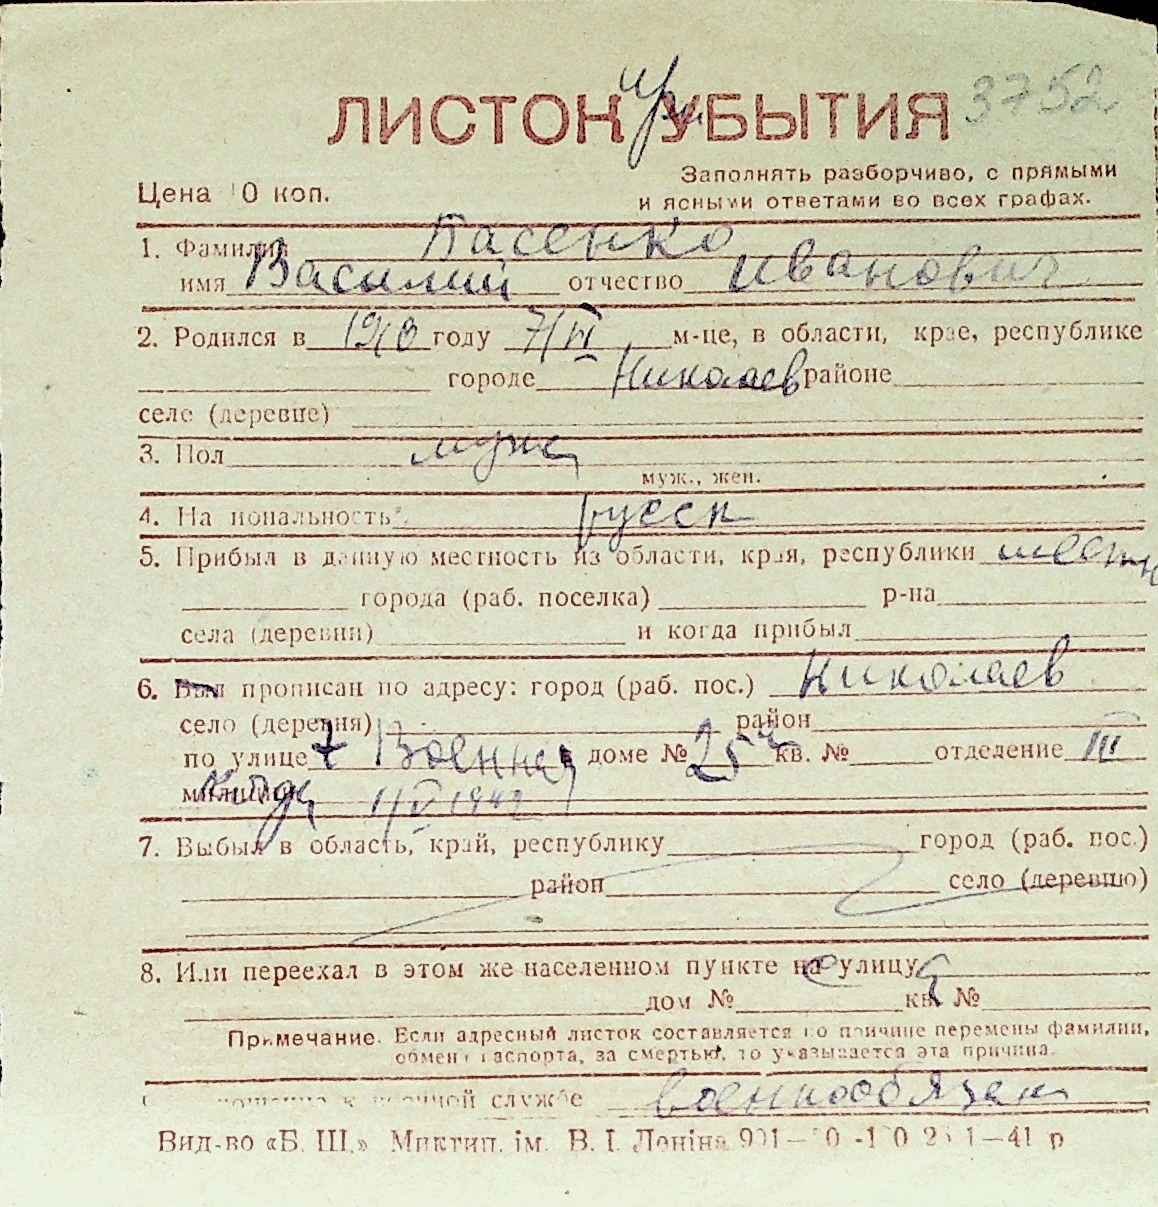 ЛИСТОК УБЫТИЯ 3752
при
Цена 10 коп.
Заполнять разборчиво, с прямыми
и ясными ответами во всех графах.
1. Фамилия Басенко
имя Василий отчество Иванович
2. Родился в году 7/VI м-це, в области, крае, республике
городе Николаев районе
селе (деревне)
3. Пол муж
муж., жен.
4. Национальность русск
5. Прибыл в данную местность из области, края, республики местн
города (раб. поселка) р-на
села (деревни) и когда прибыл
6. Был прописан по адресу: город (раб. пос.) Николаев
село (деревня) район
по улице 7 Военная в доме № 25 кв. № отделение III
милиции 1/V 1942
7. Выбыл в область, край, республику город (раб. пос.)
район село (деревню)
8. Или переехал в этом же населенном пункте на улицу
дом № кв. №
Примечание. Если адресный листок составляется по причине перемены фамилии,
обмена паспорта, за смертью, то указывается эта причина.
военной службе военнообязан
Вид-во «Б. Ш.» Миктип. ім. В. І. Леніна 41 р